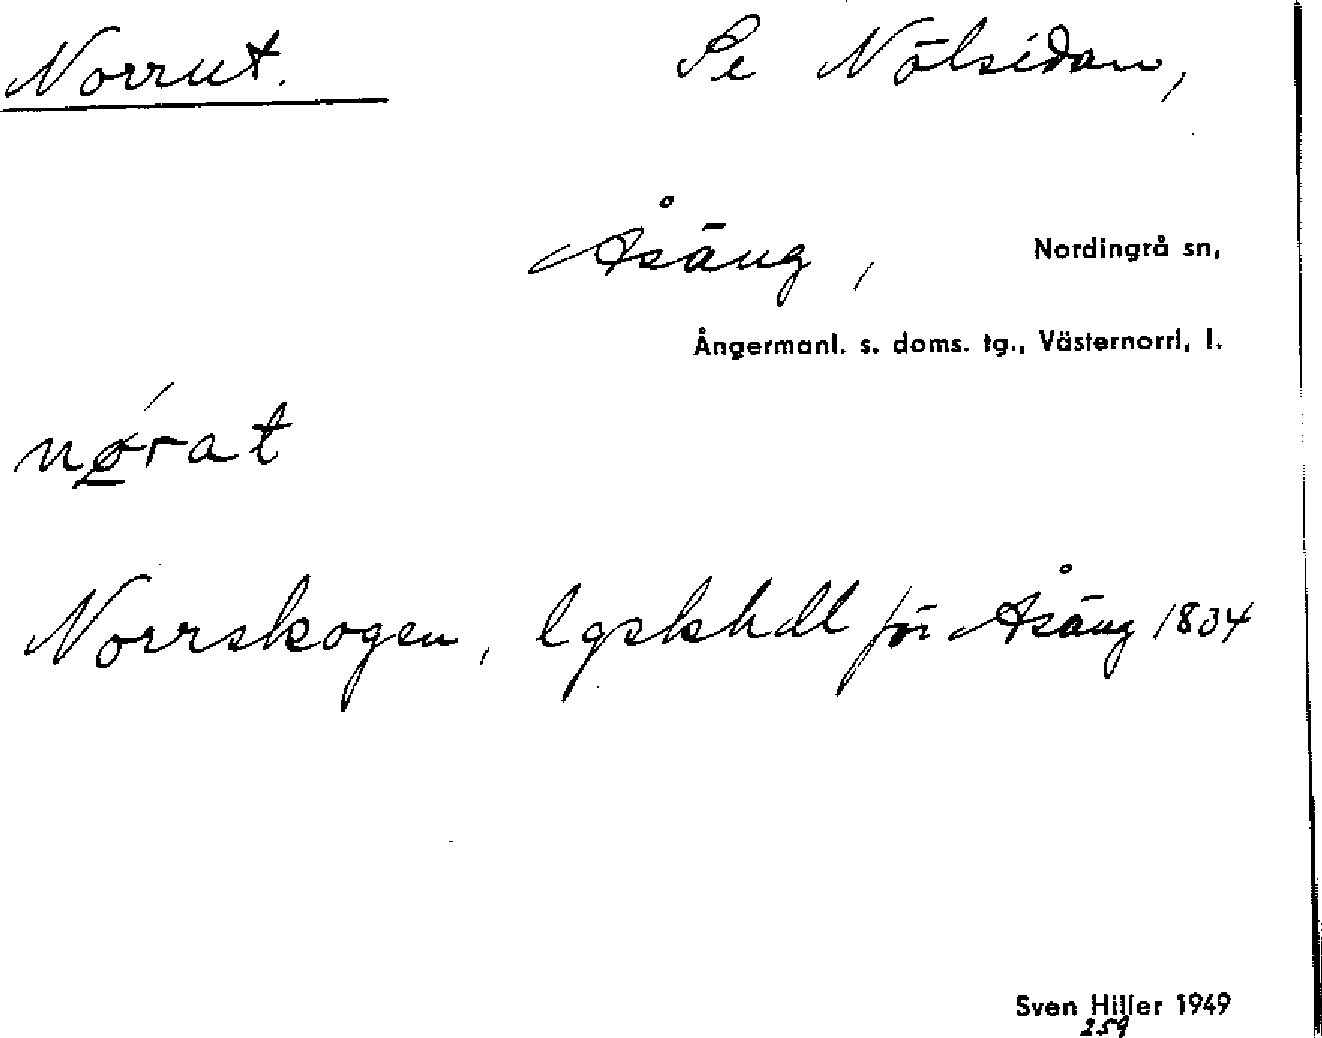 Norrut. Se Nölsidan,
Åsäng, Nordingrå sn,
Ångermanl. s. doms. tg., Västernorrl, l.
nǿ̲rat
Norrskogen, lgskhdl för Åsäng 1834
Sven Hiller 1949
259